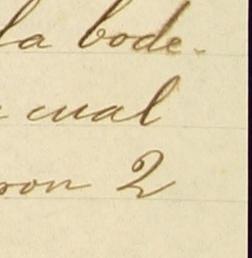 la bode-
cual
ron 2